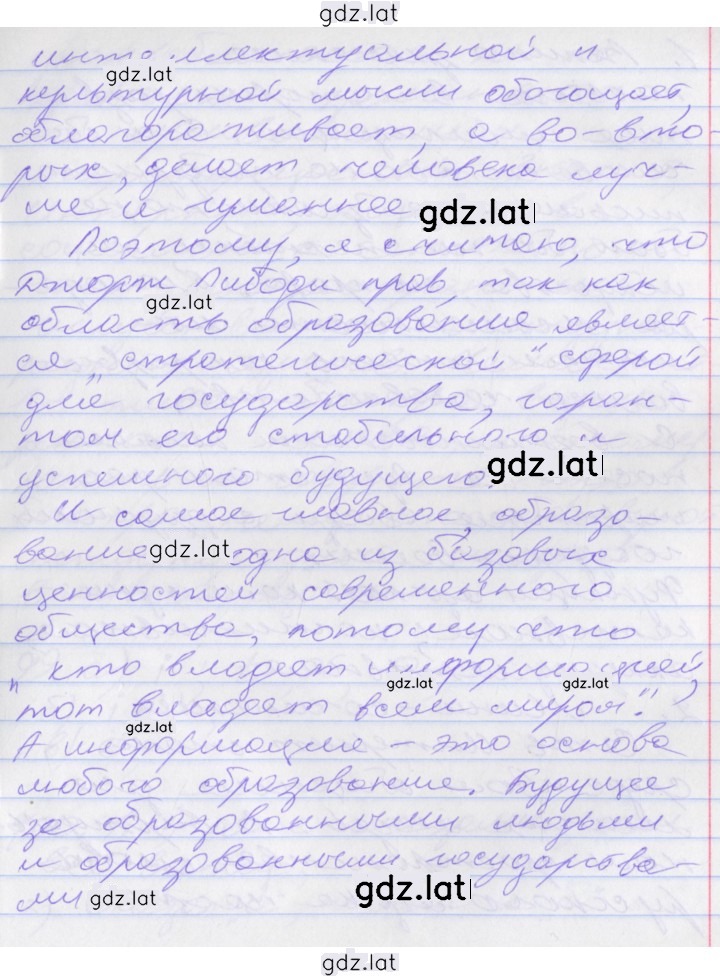 gdz.lat
интеллектуальной и
gdz.lat
культурной мысли обогащает,
облагораживает, а во-вто-
рых, делает человека луч-
ше и гуманнее
gdz.lat
Поэтому, я считаю, что
Джордж Пибоди прав, так как
gdz.lat
область образование являет-
ся "стратегической" сферой
для государства, гаран-
том его стабильного и
успешного будущего.
gdz.lat
И самое главное, образо-
вание gdz.lat одна из базовых
ценностей современного
общества, потому что
"кто владеет информацией,
gdz.lat gdz.lat
тот владеет всем миром".
gdz.lat
А информация - это основа
любого образование. Будущее
за образованными людьми
и образованными государства-
ми gdz.lat
gdz.lat
gdz.lat